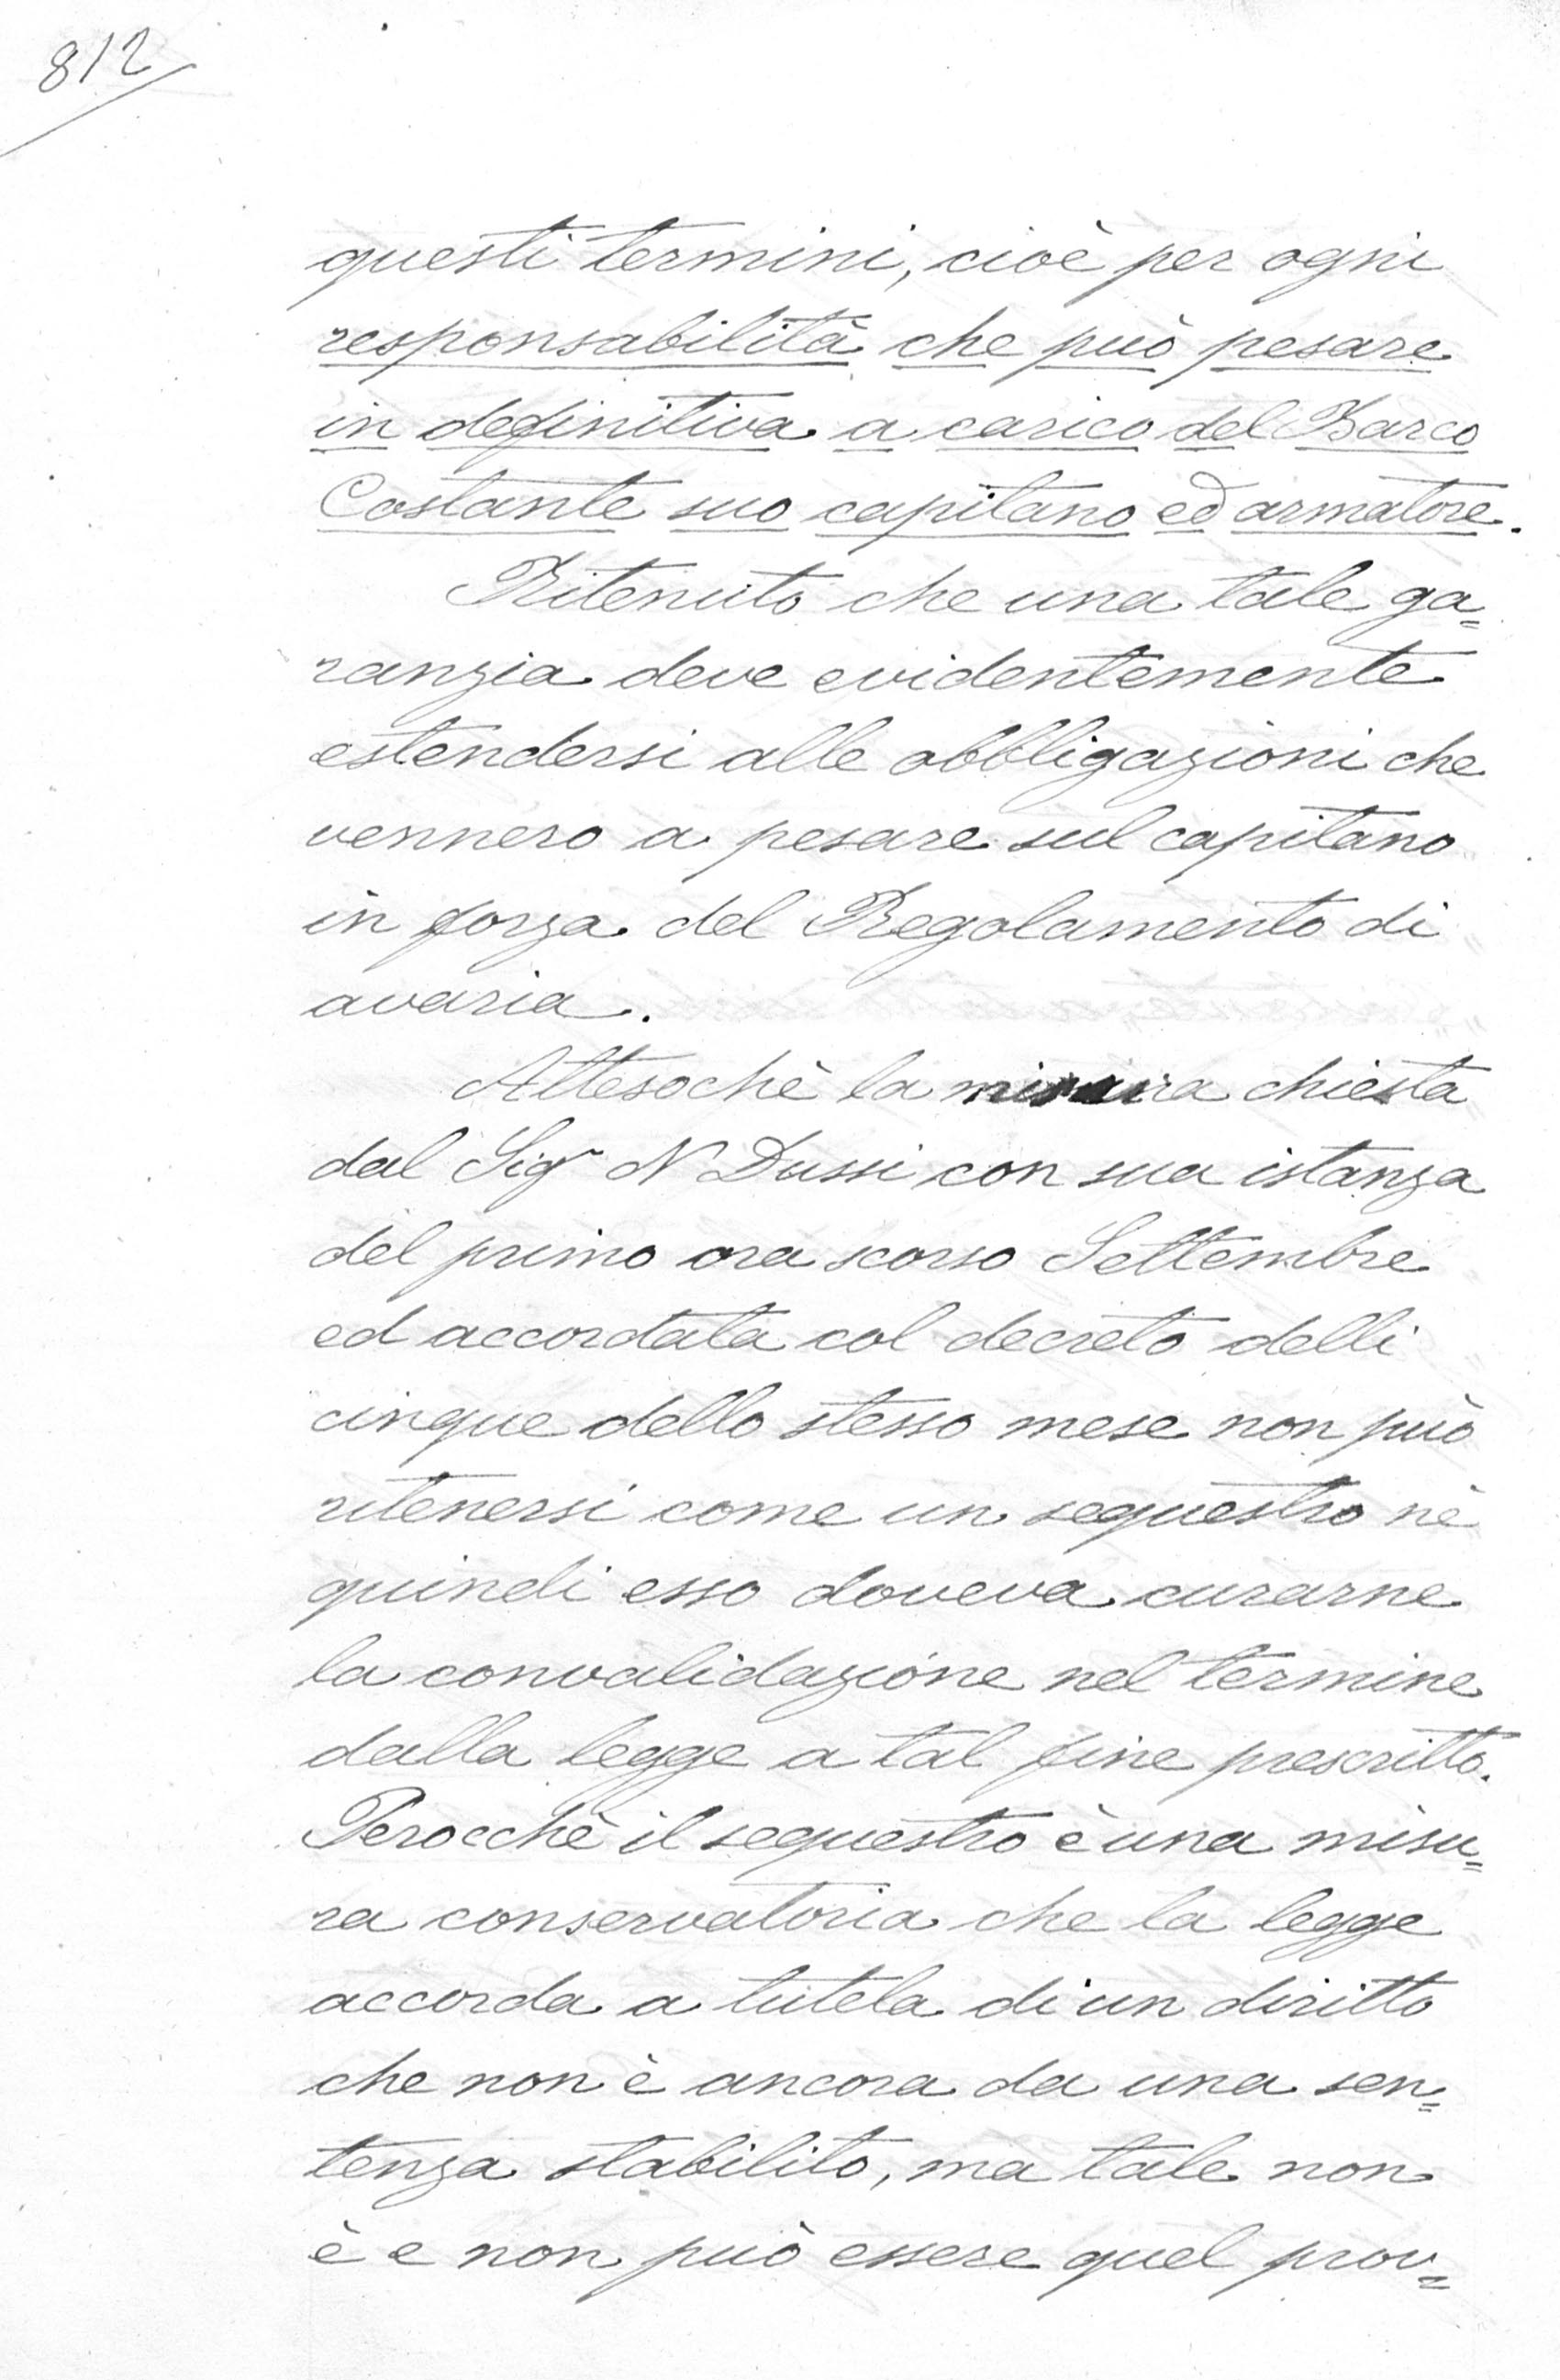 812
questi termini, cioè per ogni
responsabilità che può pesare
in definitiva a carico del Barco
Costante suo capitano ed armatore.
Ritenuto che una tale ga=
ranzia deve evidentemente
estendersi alle obbligazioni che
vennero a pesare sul capitano
in forza del Regolamento di
avaria.
Attesochè la misura chiesta
dal Sigr N Dussi con sua istanza
del primo ora scorso Settembre
ed accordata col decreto delli
cinque dello stesso mese non può
ritenersi come un sequestro nè
quindi esso doveva curarne
la convalidazione nel termine
dalla legge a tal fine prescritto.
Perocchè il sequestro è una misu=
ra conservatoria che la legge
accorda a tutela di un diritto
che non è ancora da una sen=
tenza stabilito, ma tale non
è e non può essere quel prov=